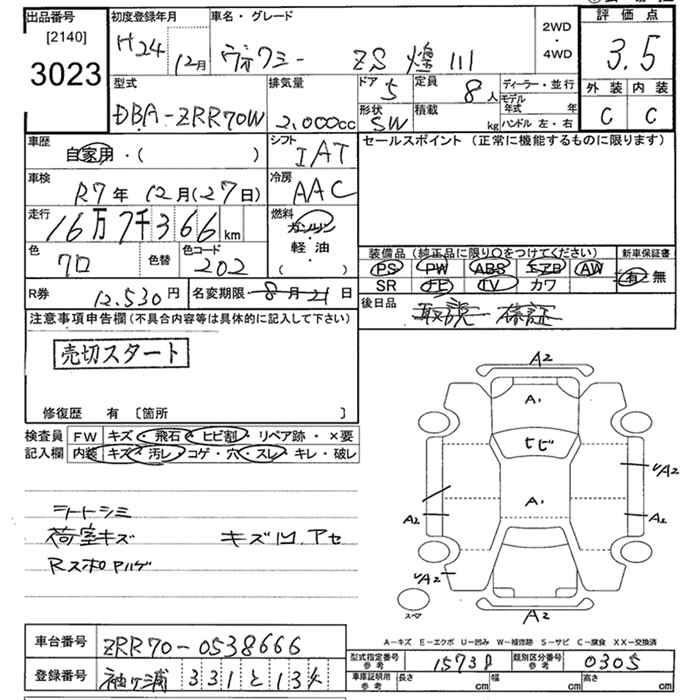 出品番号 初度登録年月 車名・グレード 2WD・4WD 評価点
[2140]
3023 H24 12月 ヴォクシー ZS 煌III 3.5
型式 排気量 ドア 5 定員 8人 ディーラー・並行 外装 内装
DBA-ZRR70W 2,000cc 形状 SW 積載 kg モデル年式 年 C C
ハンドル 左・右
車歴 自家用・( ) シフト IAT セールスポイント (正常に機能するものに限ります)
車検 R7年12月(27日) 冷房 AAC
走行 16万7千366km 燃料 ガソリン
軽・油
( )
色 クロ 色替 色コード 202 装備品 (純正品に限り○をつけてください) 新車保証書
PS PW ABS エアB AW 有・無
SR ナビ TV カワ
R券 12,530円 名変期限 8月21日 後日品 取説 保証
注意事項申告欄 (不具合内容等は具体的に記入して下さい)
売切スタート
修復歴 有 〔箇所 〕
検査員 FW キズ・飛石・ヒビ割・リペア跡・×要
記入欄 内装 キズ・汚レ・コゲ・穴・スレ・キレ・破レ
シートシミ
荷室キズ キズ凹.アセ
Rスポハゲ
A2
A1
ヒビ
A1
A2
A2
A2
A2
A2
A-キズ E-エクボ U-凹み W-補修跡 S-サビ C-腐食 XX-交換済
車台番号 ZRR70-0538666
型式指定番号 参考 15738 類別区分番号 参考 0305
登録番号 袖ヶ浦 331 と
車庫証明用 参考 長さ cm 幅 cm 高さ cm